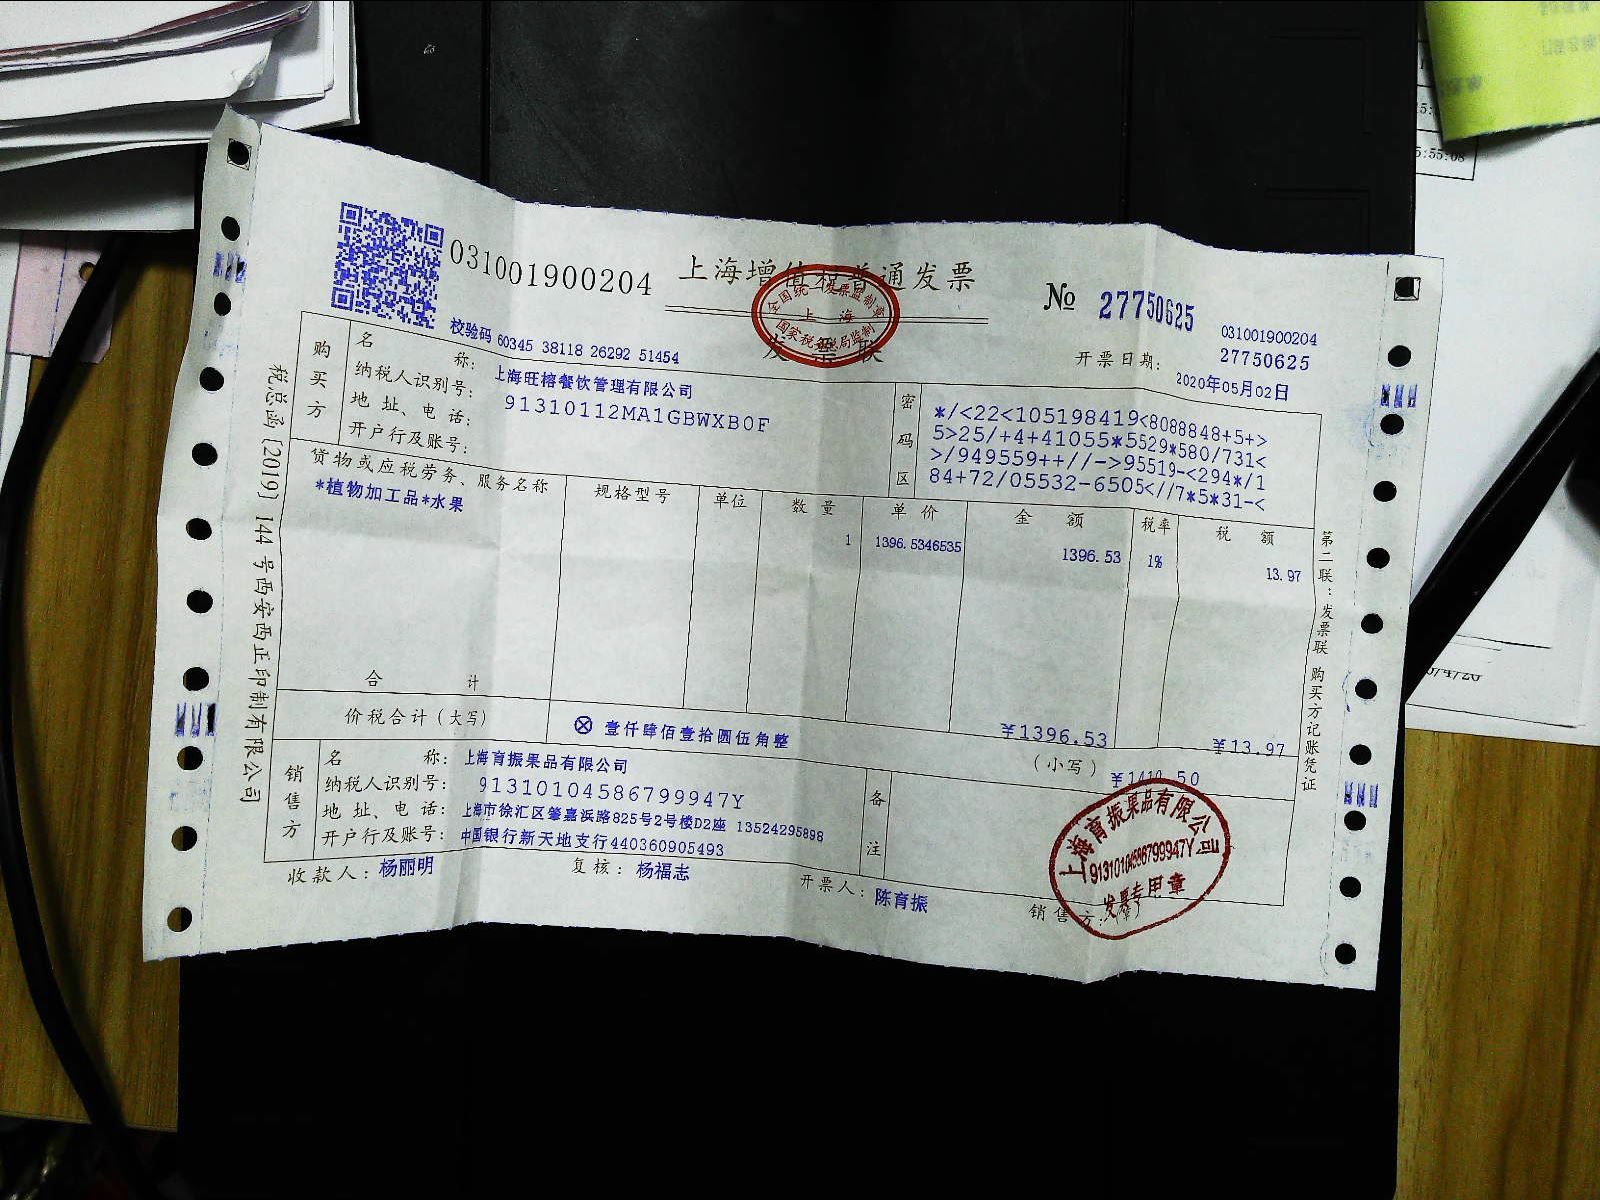 031001900204
上海增值税普通发票
发票联
全国统一发票监制章
上海
国家税务总局监制
№ 27750625
031001900204
27750625
校验码 60345 38118 26292 51454
开票日期: 2020年05月02日
购买方
名 称: 上海旺榕餐饮管理有限公司
纳税人识别号: 91310112MA1GBWXB0F
地 址、电 话:
开户行及账号:
密码区
*/<22<105198419<8088848+5+>
5>25/+4+41055*5529*580/731<
>/949559++//->95519-<294*/1
84+72/05532-6505<//7*5*31-<
货物或应税劳务、服务名称 规格型号 单位 数 量 单 价 金 额 税率 税 额
*植物加工品*水果 1 1396.5346535 1396.53 1% 13.97
合 计 ¥1396.53 ¥13.97
价税合计(大写) ⊗ 壹仟肆佰壹拾圆伍角整 (小写) ¥1410.50
销售方
名 称: 上海育振果品有限公司
纳税人识别号: 91310104586799947Y
地 址、电 话: 上海市徐汇区肇嘉浜路825号2号楼D2座 13524295898
开户行及账号: 中国银行新天地支行440360905493
备注
收款人: 杨丽明 复核: 杨福志 开票人: 陈育振 销售方:(章)
上海育振果品有限公司
91310104586799947Y
发票专用章
税总函[2019]144号西安西正印制有限公司
第二联:发票联 购买方记账凭证
5:55:08